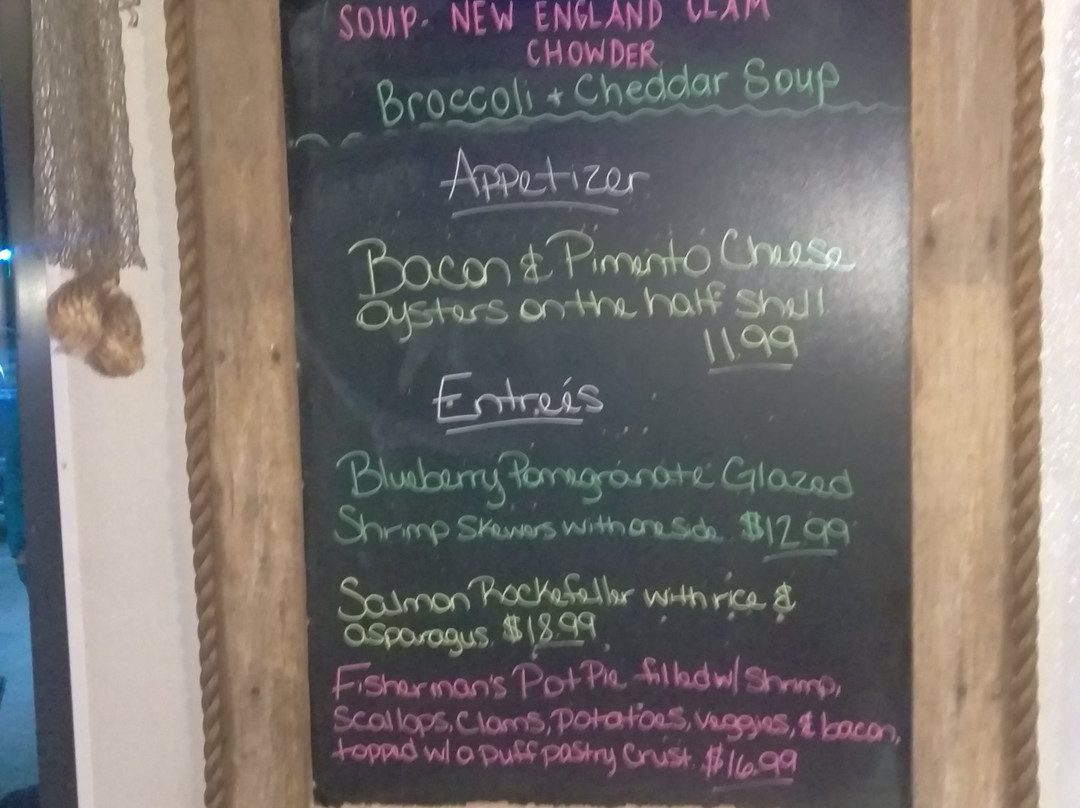 SOUP- NEW ENGLAND CLAM
CHOWDER
Broccoli + Cheddar Soup
Appetizer
Bacon & Pimento Cheese
oysters on the half shell
11.99
Entreés
Blueberry Pomegranate Glazed
Shrimp Skewers with one side $12.99
Salmon Rockefeller with rice &
asparagus. $18.99
Fisherman's Pot Pie filled w/ Shrimp,
Scallops, Clams, Potatoes, veggies, & bacon,
topped w/ a puff pastry Crust. $16.99